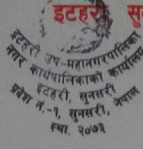 इटहरी, सु
इटहरी उप-महानगरपालिका
नगर कार्यपालिकाको कार्यालय
इटहरी, सुनसरी
प्रदेश नं.-१, सुनसरी, नेपाल
स्था. २०७३